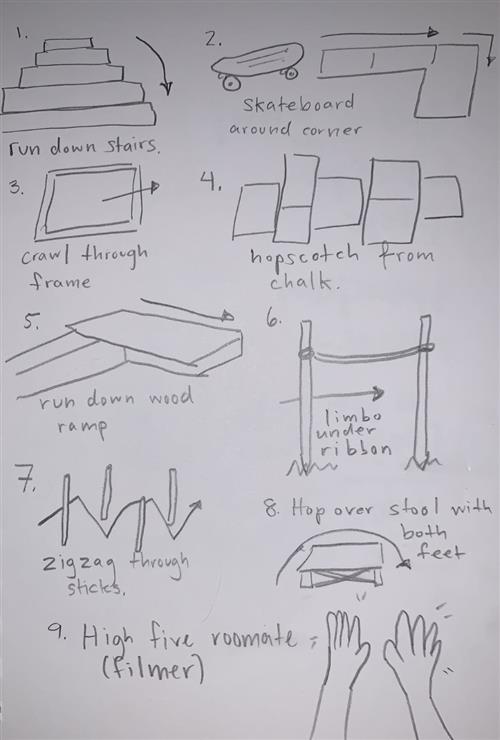 1.
run down stairs.
2.
skateboard
around corner
3.
crawl through
frame
4.
hopscotch from
chalk.
5.
run down wood
ramp
6.
limbo
under
ribbon
7.
zigzag through
sticks.
8. Hop over stool with
both
feet
9. High five roomate =
(filmer)